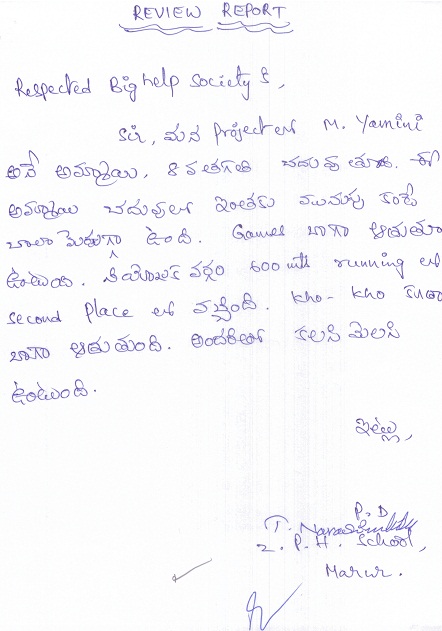 REVIEW REPORT
Respected Big help Society కి,
Sir, మన project లో M. Yamini
అనే అమ్మాయి, 8 వ తరగతి చదువుతూ. ఈ
అమ్మాయి చదువులో ఇంతకు ముందుపు కంటే
చాలా మెరుగ్గా ఉంది. Games బాగా ఆడుతూ
ఉంటుంది. వర్గం 600 mts running లో
second place లో వచ్చింది. kho - kho కూడా
బాగా ఆడుతుంది. అందరితో కలసి మెలసి
ఉంటుంది.
ఇట్లు,
P. D
T.
Z. P. H. School,
Marur.